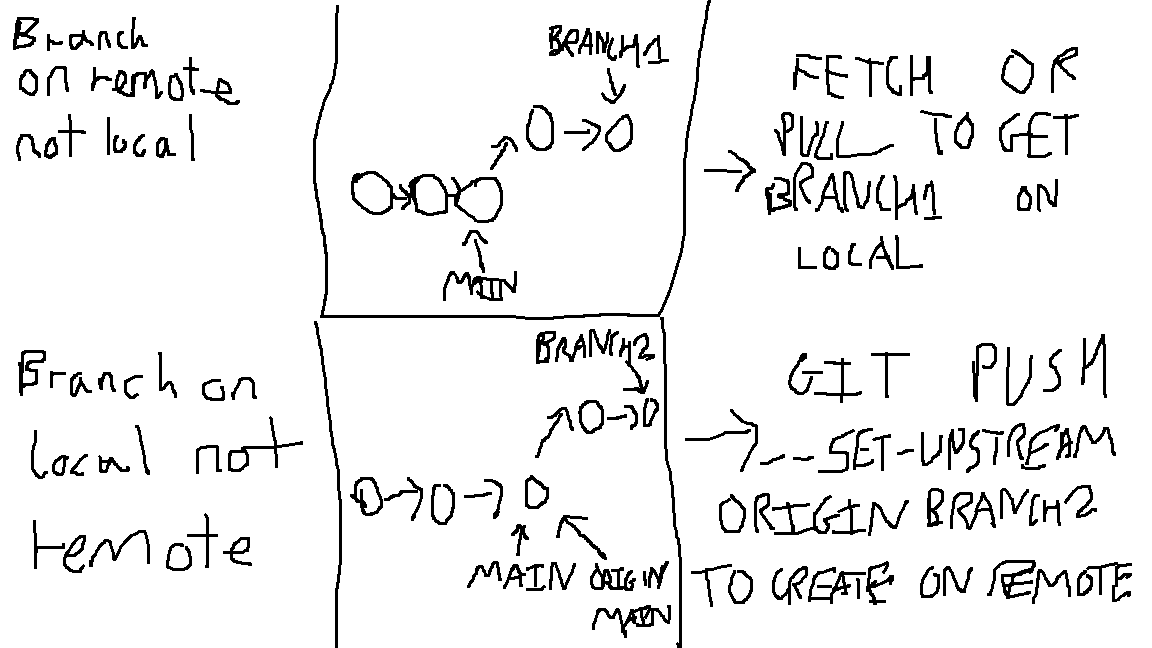 Branch
on remote
not local
BRANCH1
MAIN
FETCH OR
PULL TO GET
BRANCH1 ON
LOCAL
Branch on
local not
remote
BRANCH2
MAIN ORIGIN
MAIN
GIT PUSH
--SET-UPSTREAM
ORIGIN BRANCH2
TO CREATE ON REMOTE